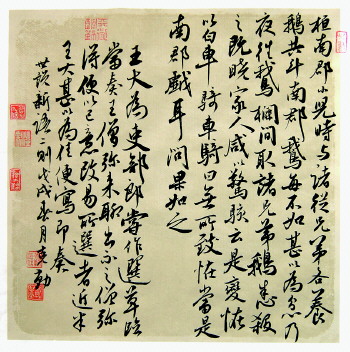 桓南郡小兒時与諸從兄弟各養
鵝共斗南郡鵝每不如甚以為忿乃
夜往鵝欄間取諸兄弟鵝悉殺
之既曉家人咸以驚駭云是變怪
以白車騎車騎曰無所致怪當是
南郡戲耳問果如之
王大為吏部郎嘗作選草臨
當奏王僧弥来聊出示之僧弥
得便以己意改易所選者近半
王大甚以為佳更寫即奏
世說新語二則戊戌春月